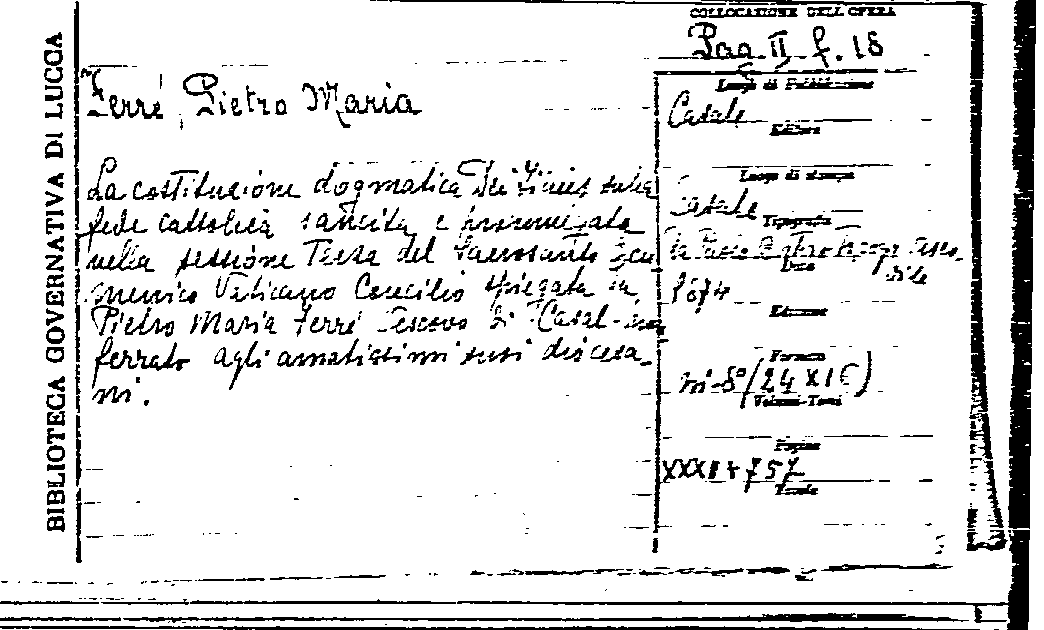 BIBLIOTECA GOVERNATIVA DI LUCCA
COLLOCAZIONE DELL'OPERA
Pag II f. 18
Ferré, Pietro Maria
La costituzione dogmatica Dei Filius sulla
fede cattolica sancita e promulgata
nella sessione Terza del Sacrosanto Ecu
menico Vaticano Concilio spiegata da
Pietro Maria Ferré Vescovo di Casal-mon
ferrato agli amatissimi suoi diocesa_
ni.
Luogo di Pubblicazione
Casale
Editore
Luogo di stampa
Casale
Tipografia
Data
1874
Edizione
Formato
in-8°(24 X 16)
Volumi-Tomi
Pagine
XXXII + 757
Tavole